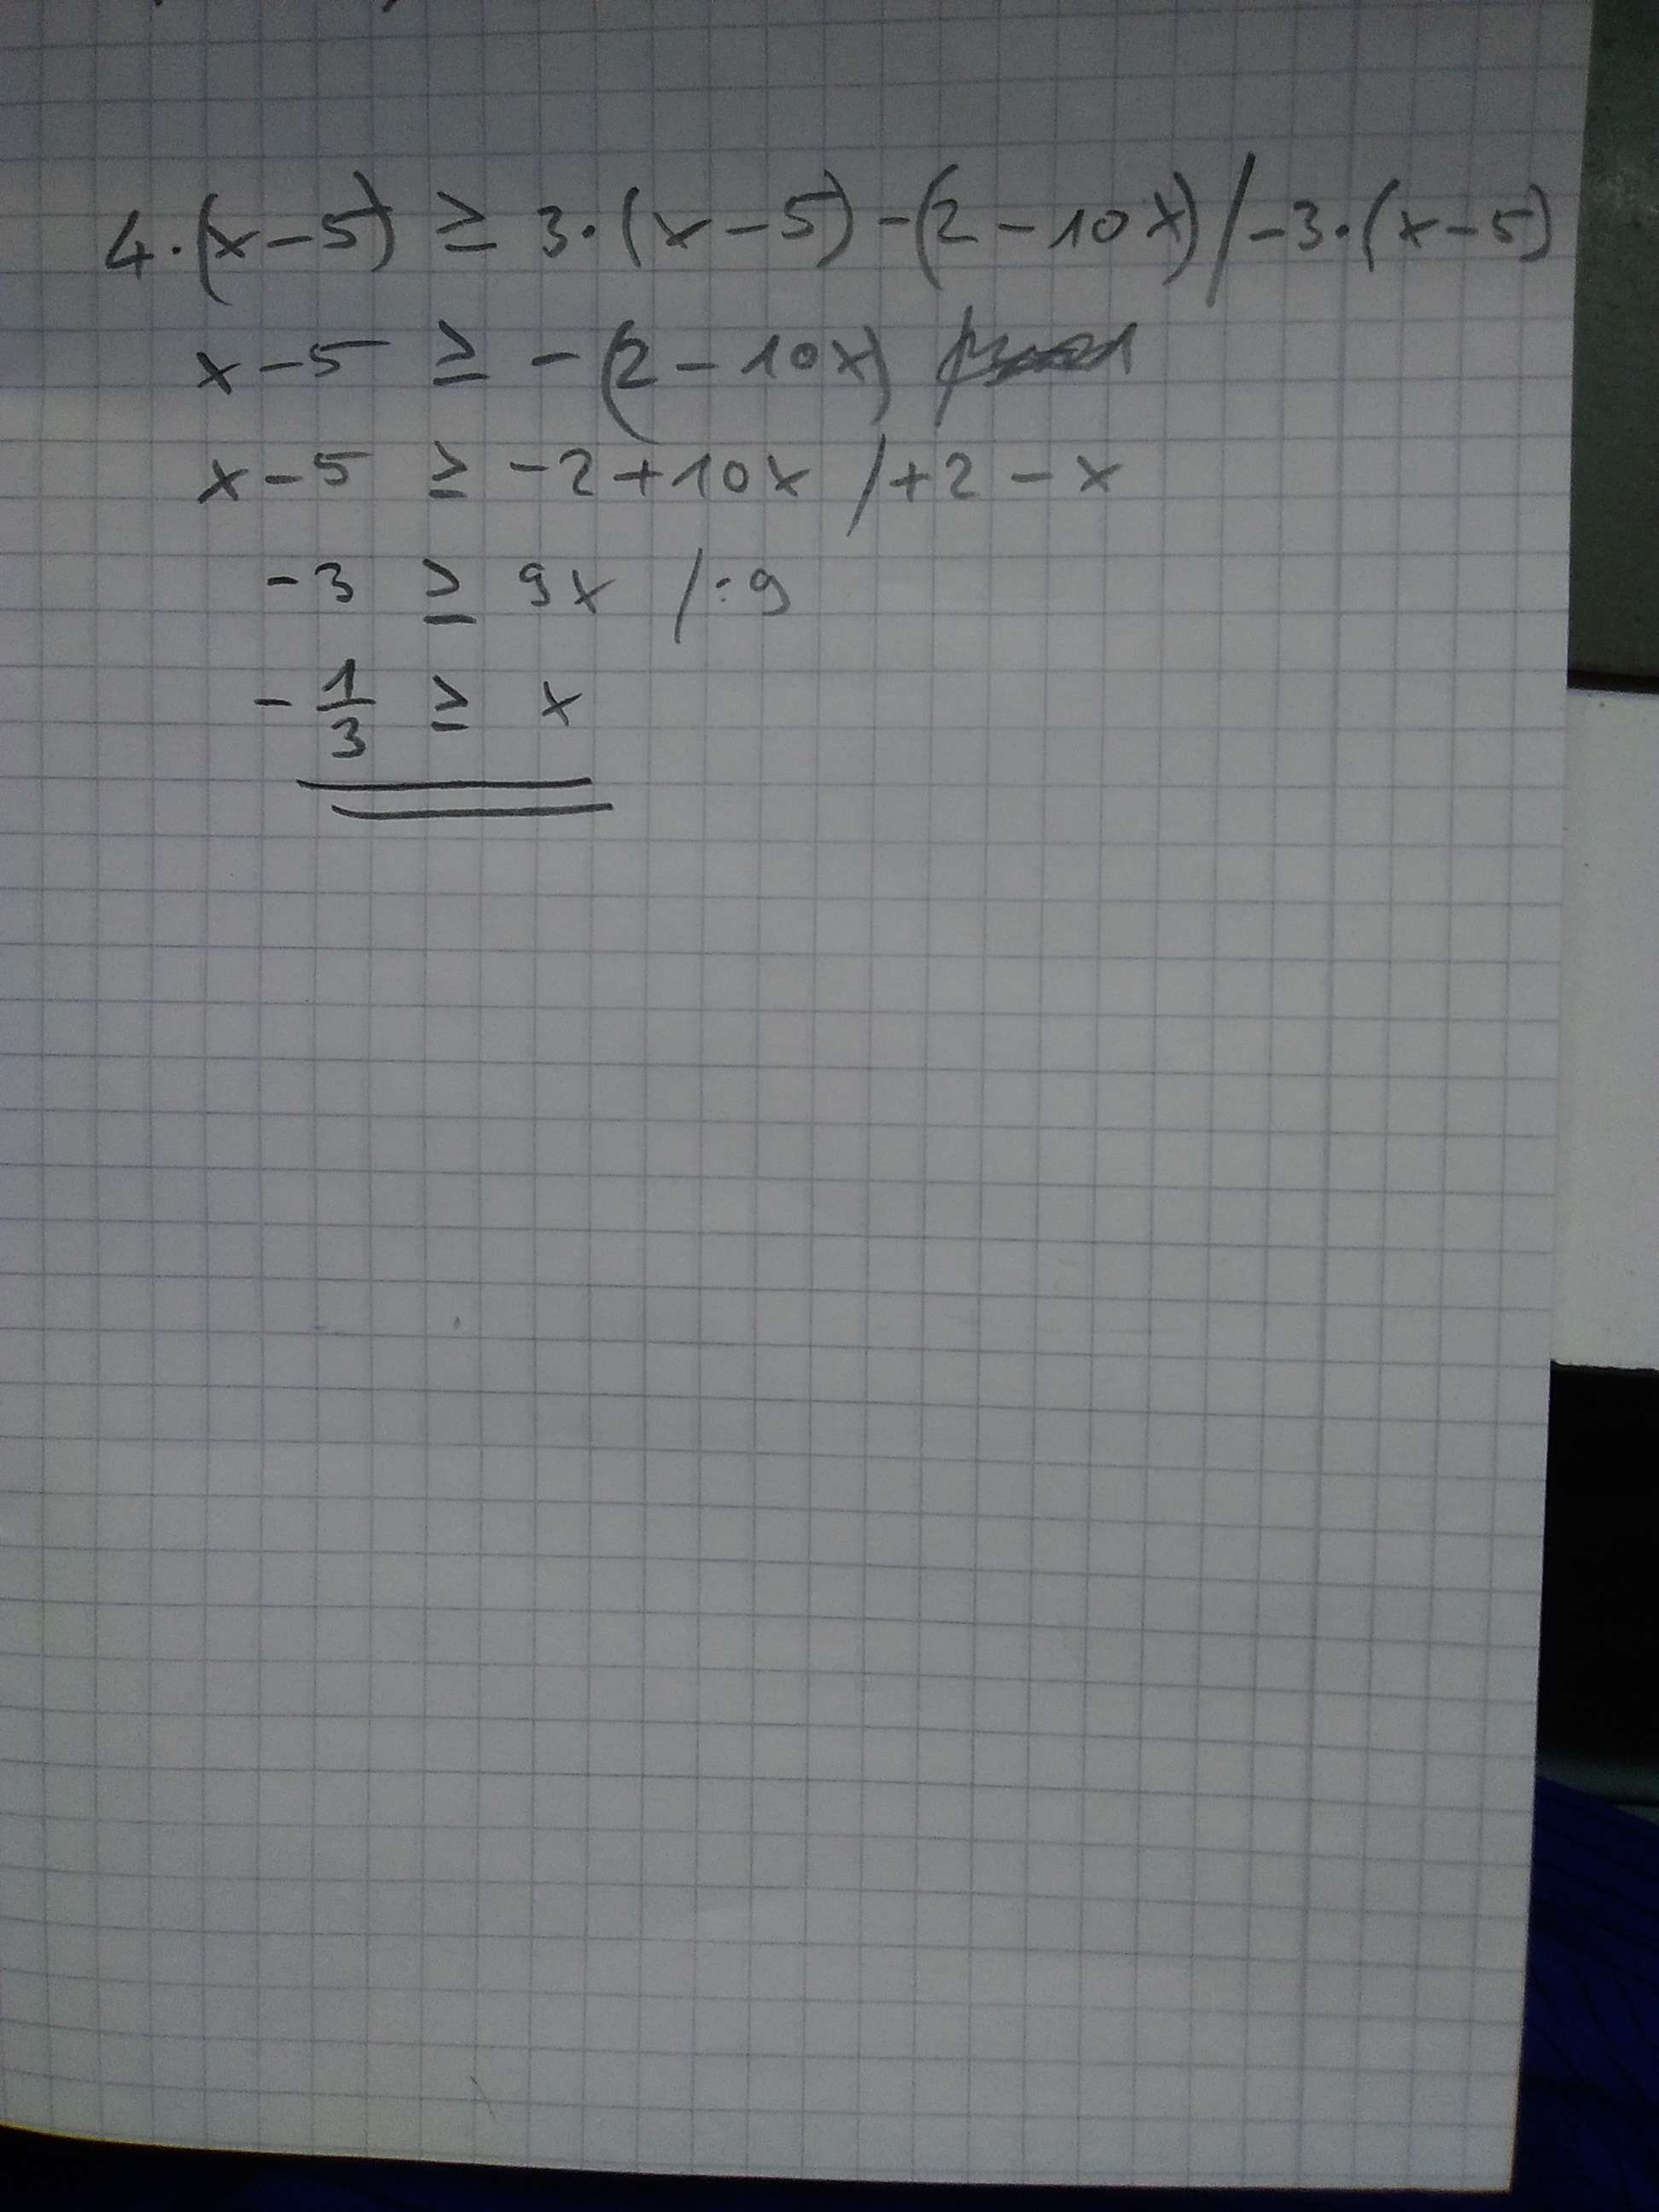 4·(x-5) ≥ 3·(x-5)-(2-10x) /-3·(x-5)
x-5 ≥ -(2-10x)
x-5 ≥ -2+10x /+2-x
-3 ≥ 9x /:9
-1/3 ≥ x